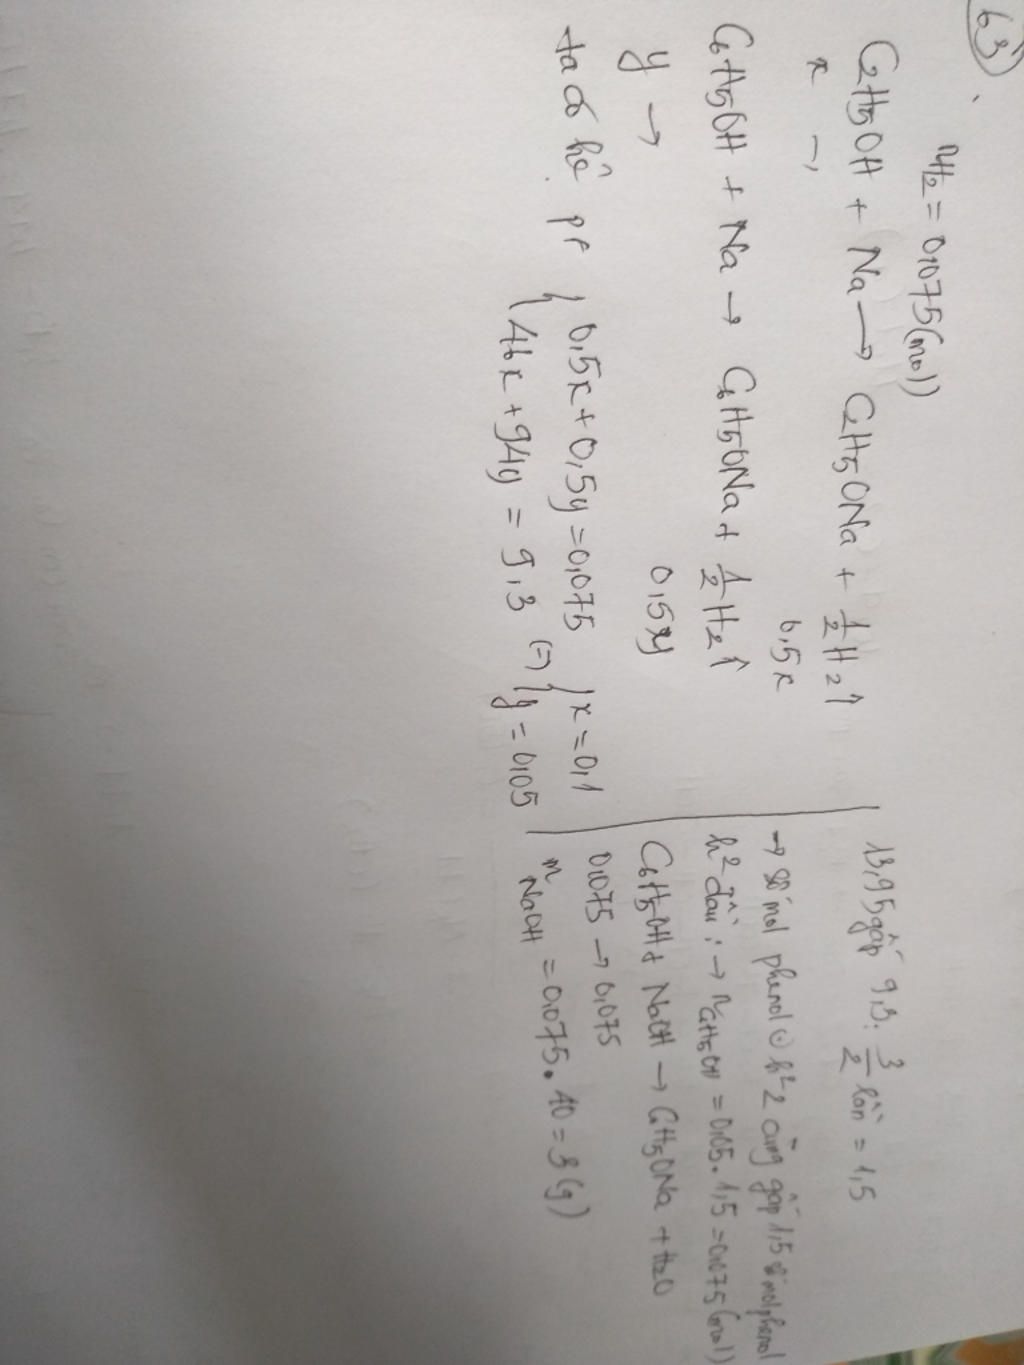 63
nH2 = 0,075(mol)
C2H5OH + Na → C2H5ONa + 1/2 H2↑
x → 0,5x
C6H5OH + Na → C6H5ONa + 1/2 H2↑
y → 0,5y
ta có hệ pt { 0,5x + 0,5y = 0,075
46x + 94y = 9,3 (=) { x = 0,1
y = 0,05
13,95 gấp 9,3. 3/2 lần = 1,5
→ số mol phenol h² 2 cũng gấp 1,5 số mol phenol
h² đầu : → nC6H5OH = 0,05 . 1,5 = 0,075 (mol)
C6H5OH + NaOH → C6H5ONa + H2O
0,075 → 0,075
mNaOH = 0,075 . 40 = 3 (g)